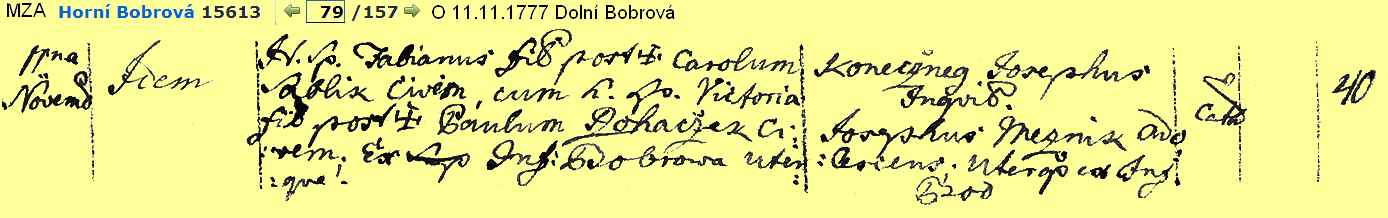 MZA Horní Bobrová 15613 79 /157 O 11.11.1777 Dolní Bobrová
Idem
Novemb
H. Sp. Fabianus fil post Carolum
Sablik Civem, cum h. Sp. Victoria
fil post Paulum Rohaczek Ci:
:vem. Ex Inf: Bobrowa uter:
:que!
Koneczneg Josephus
Josephus Meznik Ado
:lescens. Uterq ex Inf.
Cath
40